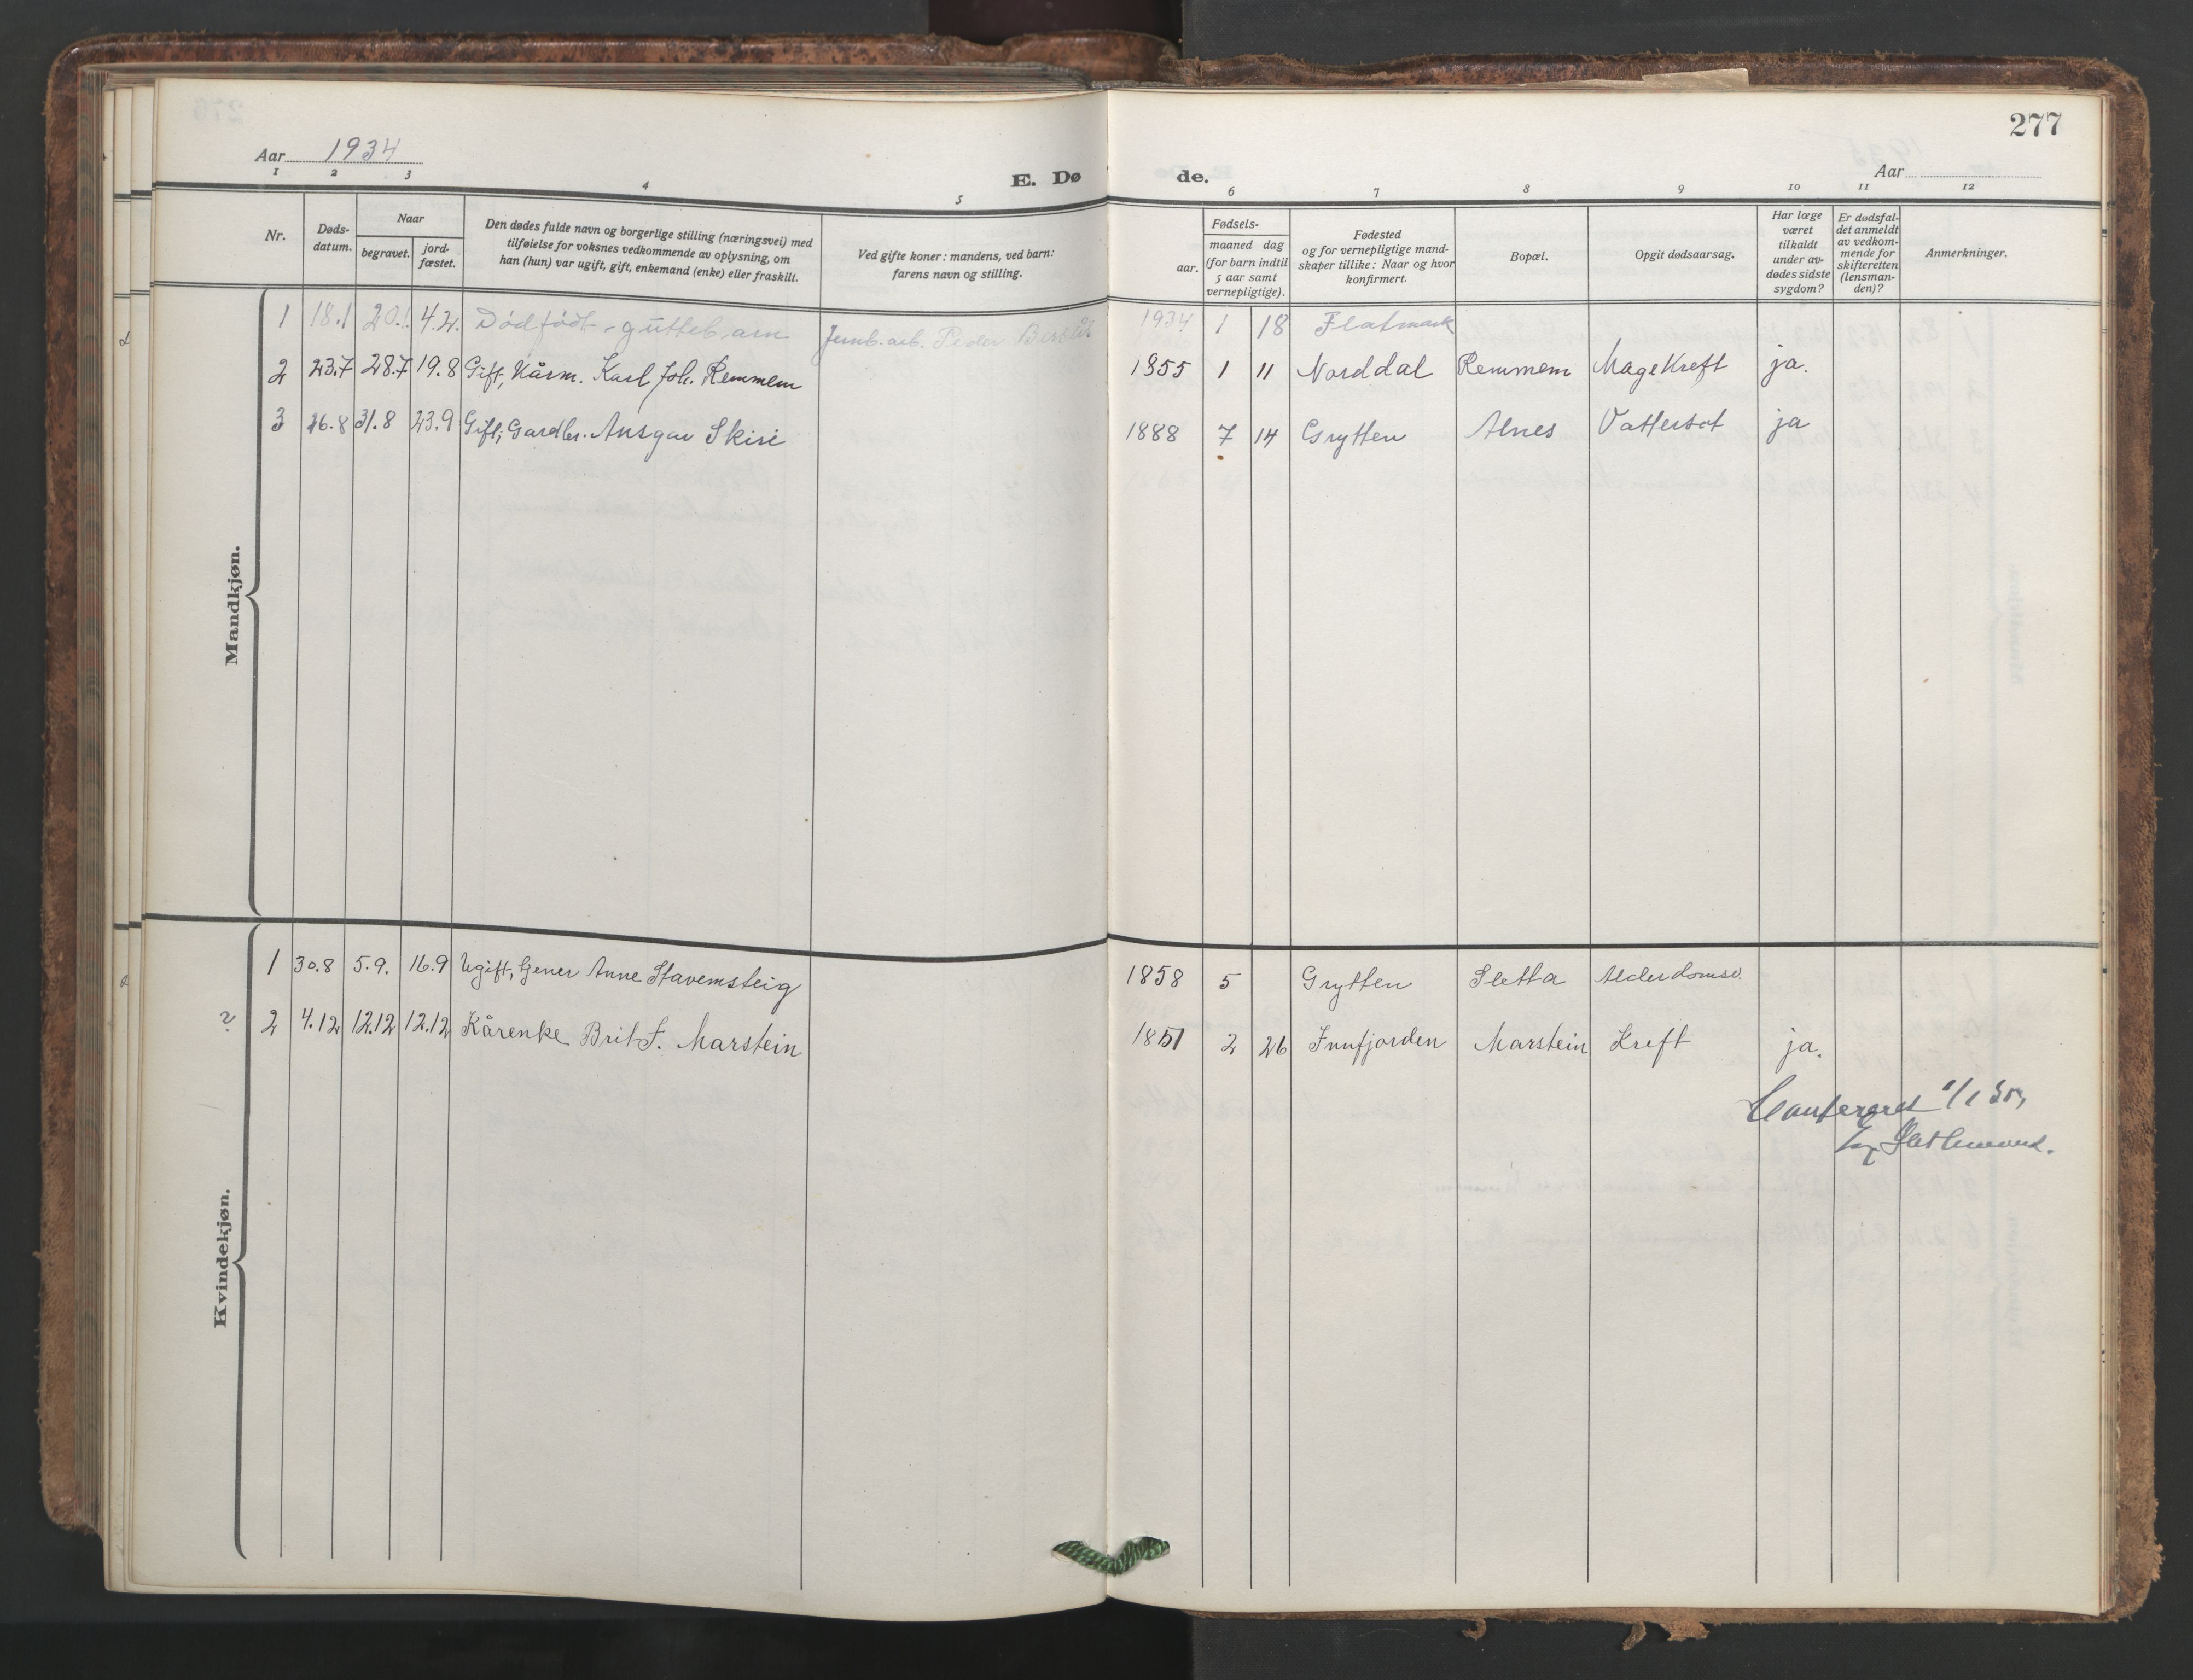 277
Aar 1934
E. Dø de.
Aar
1 2 3 4 5 6 7 8 9 10 11 12
Nr.
Døds-
datum.
Naar
begravet.
jord-
fæstet.
Den dødes fulde navn og borgerlige stilling (næringsvei) med
tilføielse for voksnes vedkommende av oplysning, om
han (hun) var ugift, gift, enkemand (enke) eller fraskilt.
Ved gifte koner: mandens, ved barn:
farens navn og stilling.
Fødsels-
aar.
maaned dag
(for barn indtil
5 aar samt
vernepligtige).
Fødested
og for vernepligtige mand-
skaper tillike: Naar og hvor
konfirmert.
Bopæl.
Opgit dødsaarsag.
Har læge
været
tilkaldt
under av-
dødes sidste
sygdom?
Er dødsfal-
det anmeldt
av vedkom-
mende for
skifteretten
(lensman-
den)?
Anmerkninger.
Mandkjøn.
1 18.1 20.1 4.2. Dødfødt guttebarn Jernb.arb. Peder 1934 1 18 Flatmark
2 23.7 28.7 19.8 Gift, Kårm. Karl Joh. Remmem 1855 1 11 Norddal Remmem Magekreft ja.
3 26.8 31.8 23.9 Gift, Gardbr. Ansgar Skiri 1888 7 14 Grytten Alnes Vattersot ja
Kvindekjøn.
1 30.8 5.9. 16.9 Ugift, Anne Stavemsteig 1858 5 Grytten Sletta Alderdomsv.
2 4.12 12.12 12.12 Kårenke Brit J. Marstein 1851 2 26 Innfjorden Marstein Kreft ja.
1/1 35,